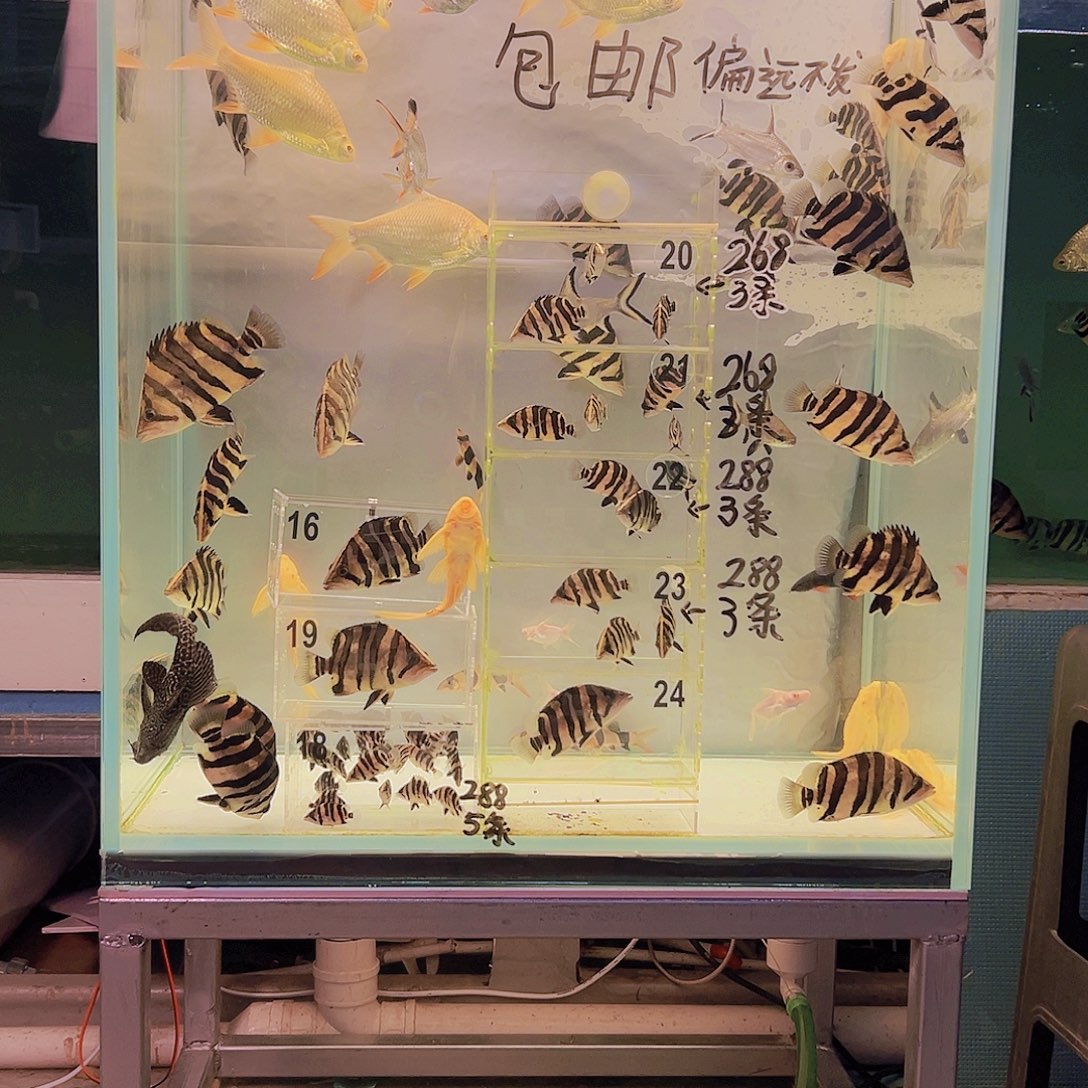 包邮 偏远不发
20 268
←3条
21 268
←3条
22 288
←3条
16
23 288
←3条
19
24
18 288
5条